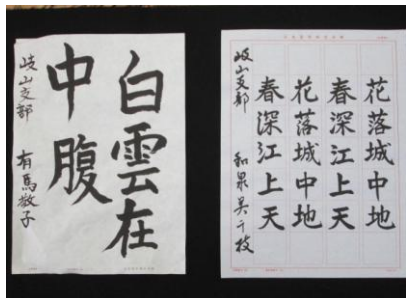 白雲在
中腹
岐山支部 有馬
花落城中地
春深江上天
花落城中地
春深江上天
岐山支部 和泉